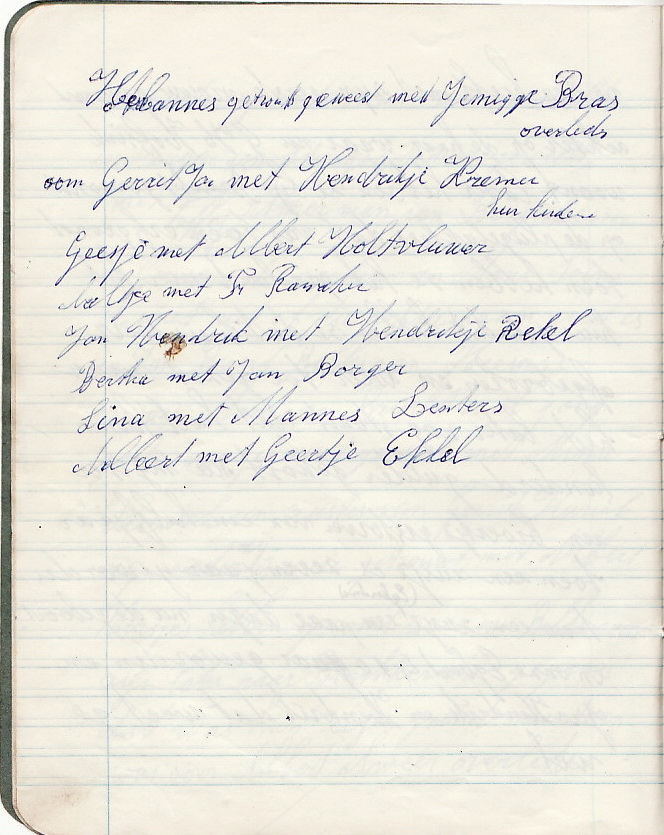 Hermannes getrouwd geweest met Jemigje Bras
overleden
oom Gerrit Jan met Hendrikje Kremer
hun kinderen
Geesje met Albert Holtvluwer
Aaltje met Fr
Jan Hendrik met Hendrikje Rekel
Bertha met Jan Borger
Lina met Mannes Lenters
Albert met Geertje Ekkel